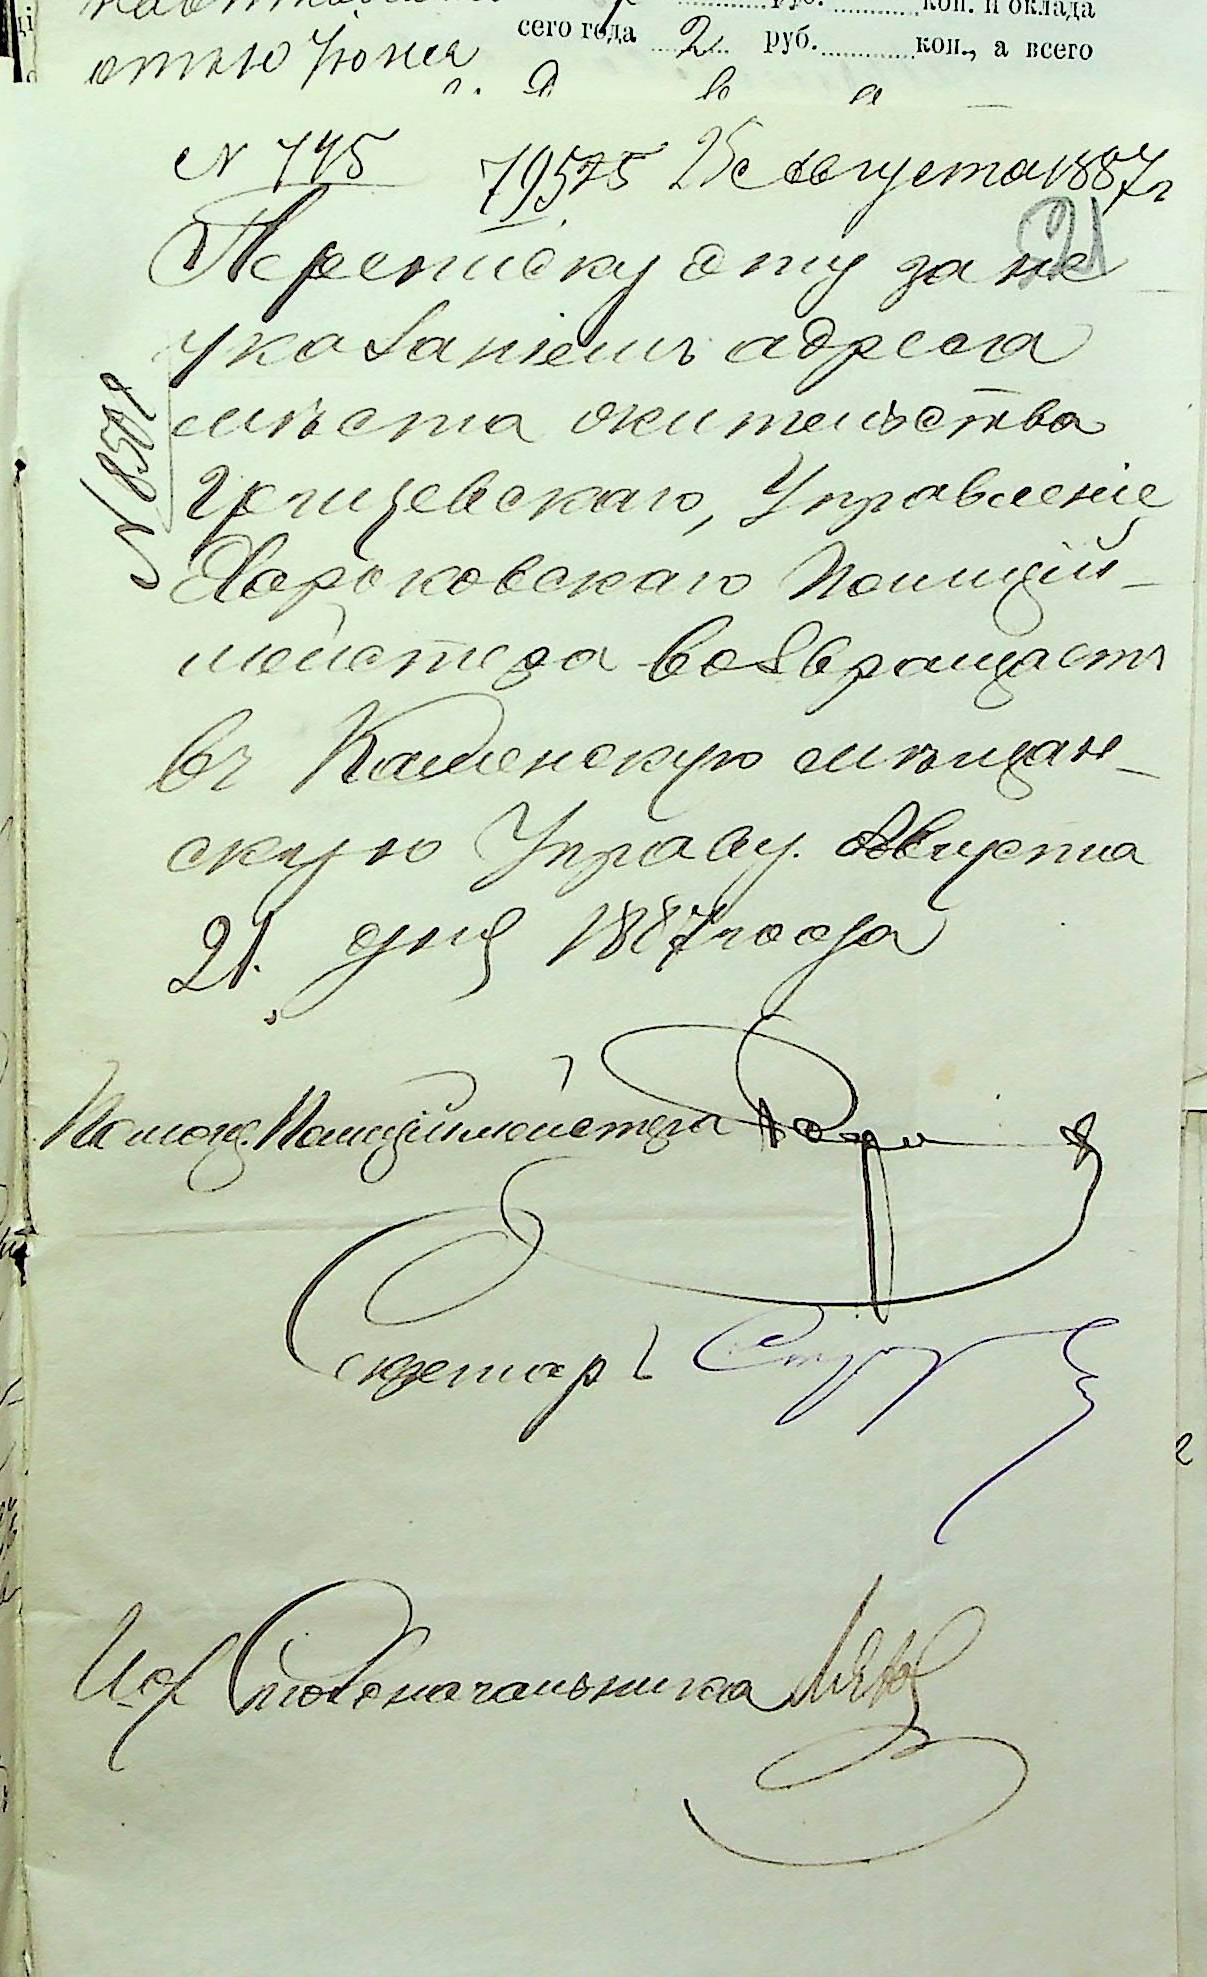 руб. коп. и оклада
сего года 2 руб. коп., а всего
д в а
N 775 25 Августа 1887 г
21
Переписку эту за не
указаніемъ адреса
мѣста жительства
Управленіе
N 8501
Харьковскаго Полицій-
мейстера возвращаетъ
въ Каменскую мѣщан-
скую Управу. Августа
21. дня 1887 года
Помощ. Полиціймейстера
Секретарь
И об Столоначальника